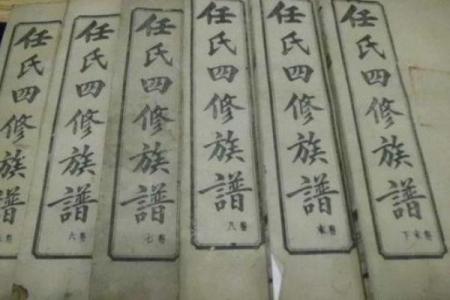 任氏四修族譜
任氏四修族譜
卷六
任氏四修族譜
卷七
任氏四修族譜
卷八
任氏四修族譜
卷末
任氏四修族譜
卷末下